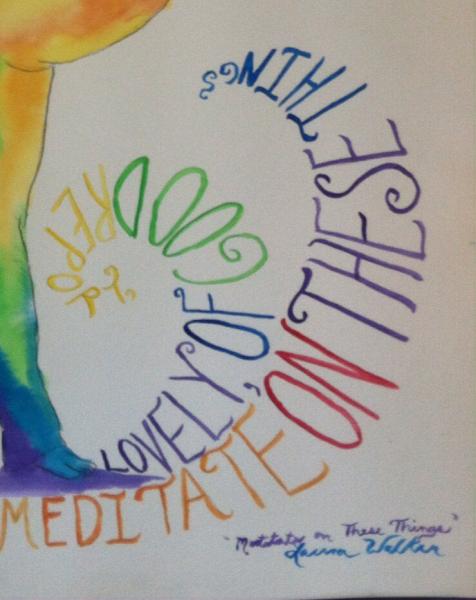 MEDITATE ON THESE THINGS
LOVELY, OF GOOD REPORT
"Meditate on These Things"
Laura Walker